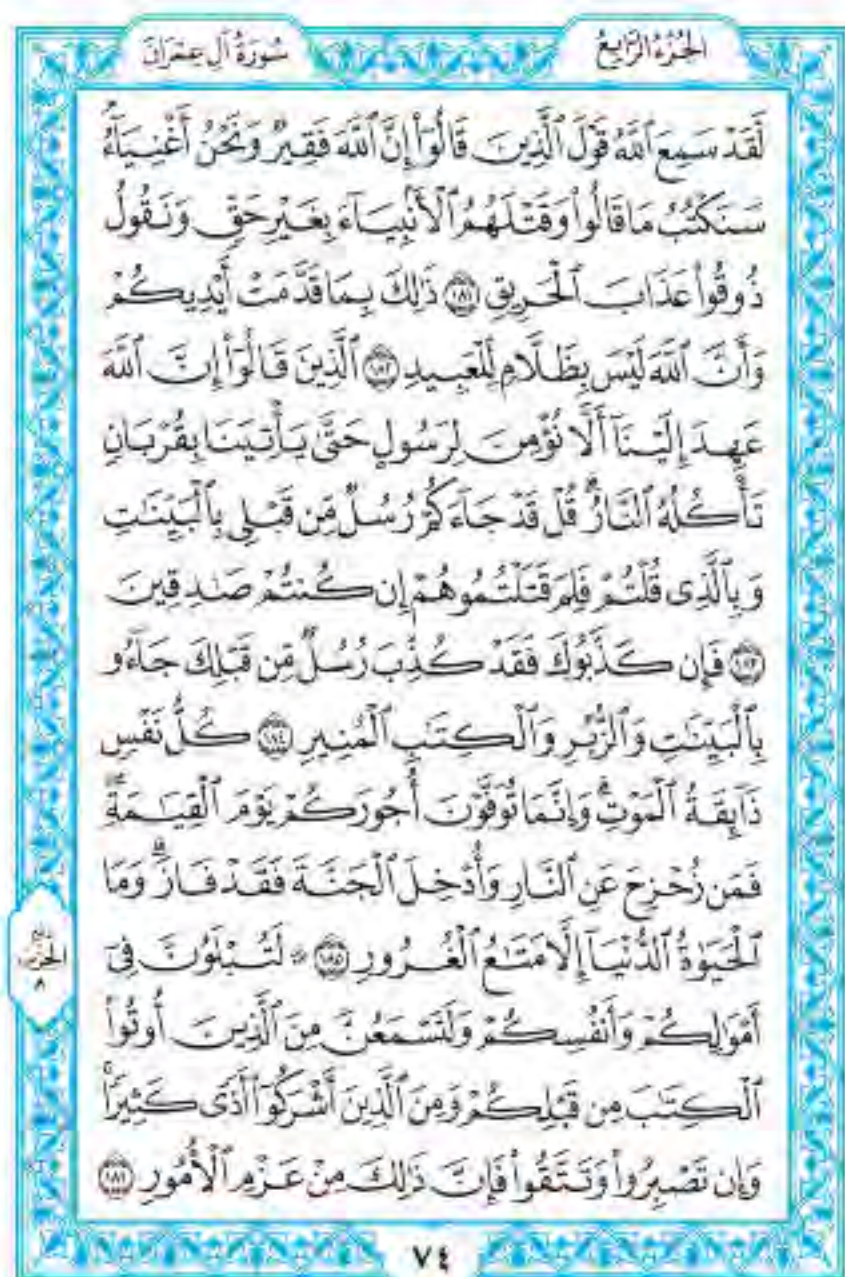 الجُزْءُ الرَّابِعُ
سُورَةُ آلِ عِمْرَانَ
لَّقَدْ سَمِعَ ٱللَّهُ قَوْلَ ٱلَّذِينَ قَالُوٓاْ إِنَّ ٱللَّهَ فَقِيرٌ وَنَحْنُ أَغْنِيَآءُۘ
سَنَكْتُبُ مَا قَالُواْ وَقَتْلَهُمُ ٱلْأَنۢبِيَآءَ بِغَيْرِ حَقٍّ وَنَقُولُ
ذُوقُواْ عَذَابَ ٱلْحَرِيقِ ١٨١ ذَٰلِكَ بِمَا قَدَّمَتْ أَيْدِيكُمْ
وَأَنَّ ٱللَّهَ لَيْسَ بِظَلَّامٍ لِّلْعَبِيدِ ١٨٢ ٱلَّذِينَ قَالُوٓاْ إِنَّ ٱللَّهَ
عَهِدَ إِلَيْنَآ أَلَّا نُؤْمِنَ لِرَسُولٍ حَتَّىٰ يَأْتِيَنَا بِقُرْبَانٍ
تَأْكُلُهُ ٱلنَّارُۗ قُلْ قَدْ جَآءَكُمْ رُسُلٌ مِّن قَبْلِى بِٱلْبَيِّنَٰتِ
وَبِٱلَّذِى قُلْتُمْ فَلِمَ قَتَلْتُمُوهُمْ إِن كُنتُمْ صَٰدِقِينَ
١٨٣ فَإِن كَذَّبُوكَ فَقَدْ كُذِّبَ رُسُلٌ مِّن قَبْلِكَ جَآءُو
بِٱلْبَيِّنَٰتِ وَٱلزُّبُرِ وَٱلْكِتَٰبِ ٱلْمُنِيرِ ١٨٤ كُلُّ نَفْسٍ
ذَآئِقَةُ ٱلْمَوْتِۗ وَإِنَّمَا تُوَفَّوْنَ أُجُورَكُمْ يَوْمَ ٱلْقِيَٰمَةِۖ
فَمَن زُحْزِحَ عَنِ ٱلنَّارِ وَأُدْخِلَ ٱلْجَنَّةَ فَقَدْ فَازَۗ وَمَا
ٱلْحَيَوٰةُ ٱلدُّنْيَآ إِلَّا مَتَٰعُ ٱلْغُرُورِ ١٨٥ ۞ لَتُبْلَوُنَّ فِىٓ
أَمْوَٰلِكُمْ وَأَنفُسِكُمْ وَلَتَسْمَعُنَّ مِنَ ٱلَّذِينَ أُوتُواْ
ٱلْكِتَٰبَ مِن قَبْلِكُمْ وَمِنَ ٱلَّذِينَ أَشْرَكُوٓاْ أَذًى كَثِيرًاۚ
وَإِن تَصْبِرُواْ وَتَتَّقُواْ فَإِنَّ ذَٰلِكَ مِنْ عَزْمِ ٱلْأُمُورِ ١٨٦
الحزب
٨
٧٤